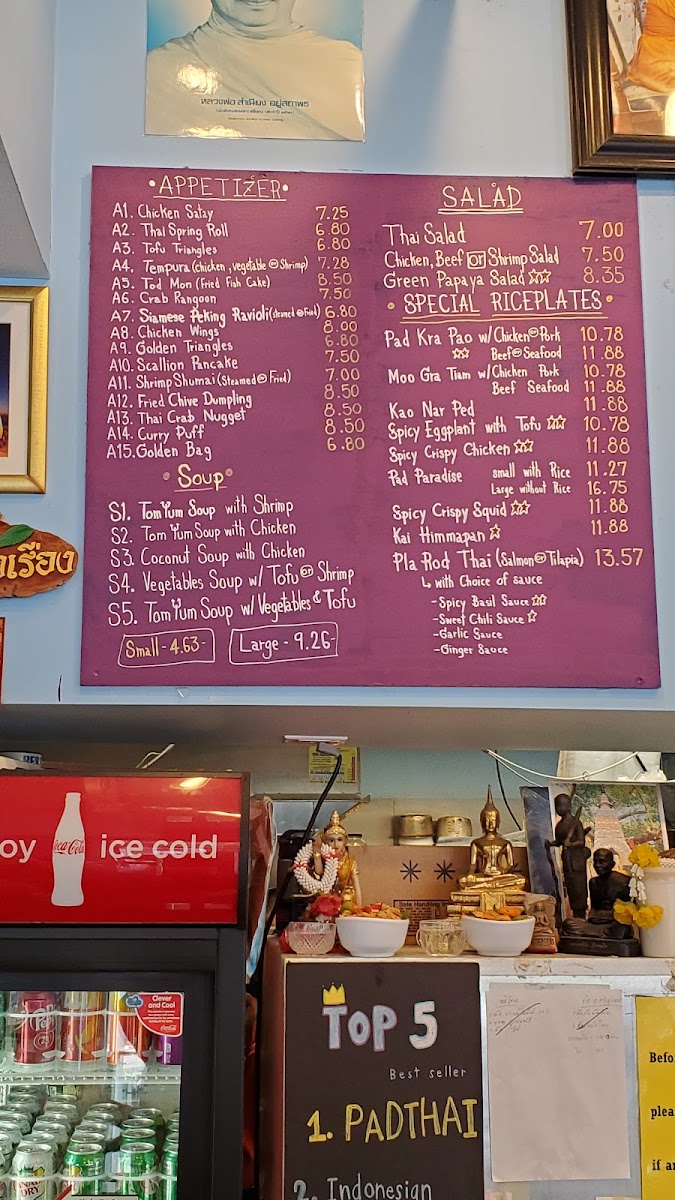 หลวงพ่อ สำเนียง อยู่สถาพร
•APPETIZER•
A1. Chicken Satay 7.25
A2. Thai Spring Roll 6.80
A3. Tofu Triangles 6.80
A4. Tempura (chicken, vegetable or Shrimp) 7.28
A5. Tod Mon (Fried Fish Cake) 8.50
A6. Crab Rangoon 7.50
A7. Siamese Peking Ravioli (steamed or Fried) 6.80
A8. Chicken Wings 8.00
A9. Golden Triangles 6.80
A10. Scallion Pancake 7.50
A11. Shrimp Shumai (Steamed or Fried) 7.00
A12. Fried Chive Dumpling 8.50
A13. Thai Crab Nugget 8.50
A14. Curry Puff 8.50
A15. Golden Bag 6.80
• Soup •
S1. Tom Yum Soup with Shrimp
S2. Tom Yum Soup with Chicken
S3. Coconut Soup with Chicken
S4. Vegetables Soup w/ Tofu or Shrimp
S5. Tom Yum Soup w/ Vegetables & Tofu
Small - 4.63- Large - 9.26-
SALAD
Thai Salad 7.00
Chicken, Beef or Shrimp Salad 7.50
Green Papaya Salad ☆☆ 8.35
• SPECIAL RICEPLATES •
Pad Kra Pao w/ Chicken or Pork 10.78
☆☆ Beef or Seafood 11.88
Moo Gra Tiam w/ Chicken Pork 10.78
Beef Seafood 11.88
Kao Nar Ped 11.88
Spicy Eggplant with Tofu ☆☆ 10.78
Spicy Crispy Chicken ☆☆ 11.88
Pad Paradise small with Rice 11.27
Large without Rice 16.75
Spicy Crispy Squid ☆☆ 11.88
Kai Himmapan ☆ 11.88
Pla Rod Thai (Salmon or Tilapia) 13.57
↳ with Choice of sauce
-Spicy Basil Sauce ☆☆
-Sweet Chili Sauce ☆
-Garlic Sauce
-Ginger Sauce
เรือง
oy Coca-Cola ice cold
Clever
and Cool
Coca-Cola
DRY
TOP 5
Best seller
1. PADTHAI
2. Indonesian
Befo
plea
if a